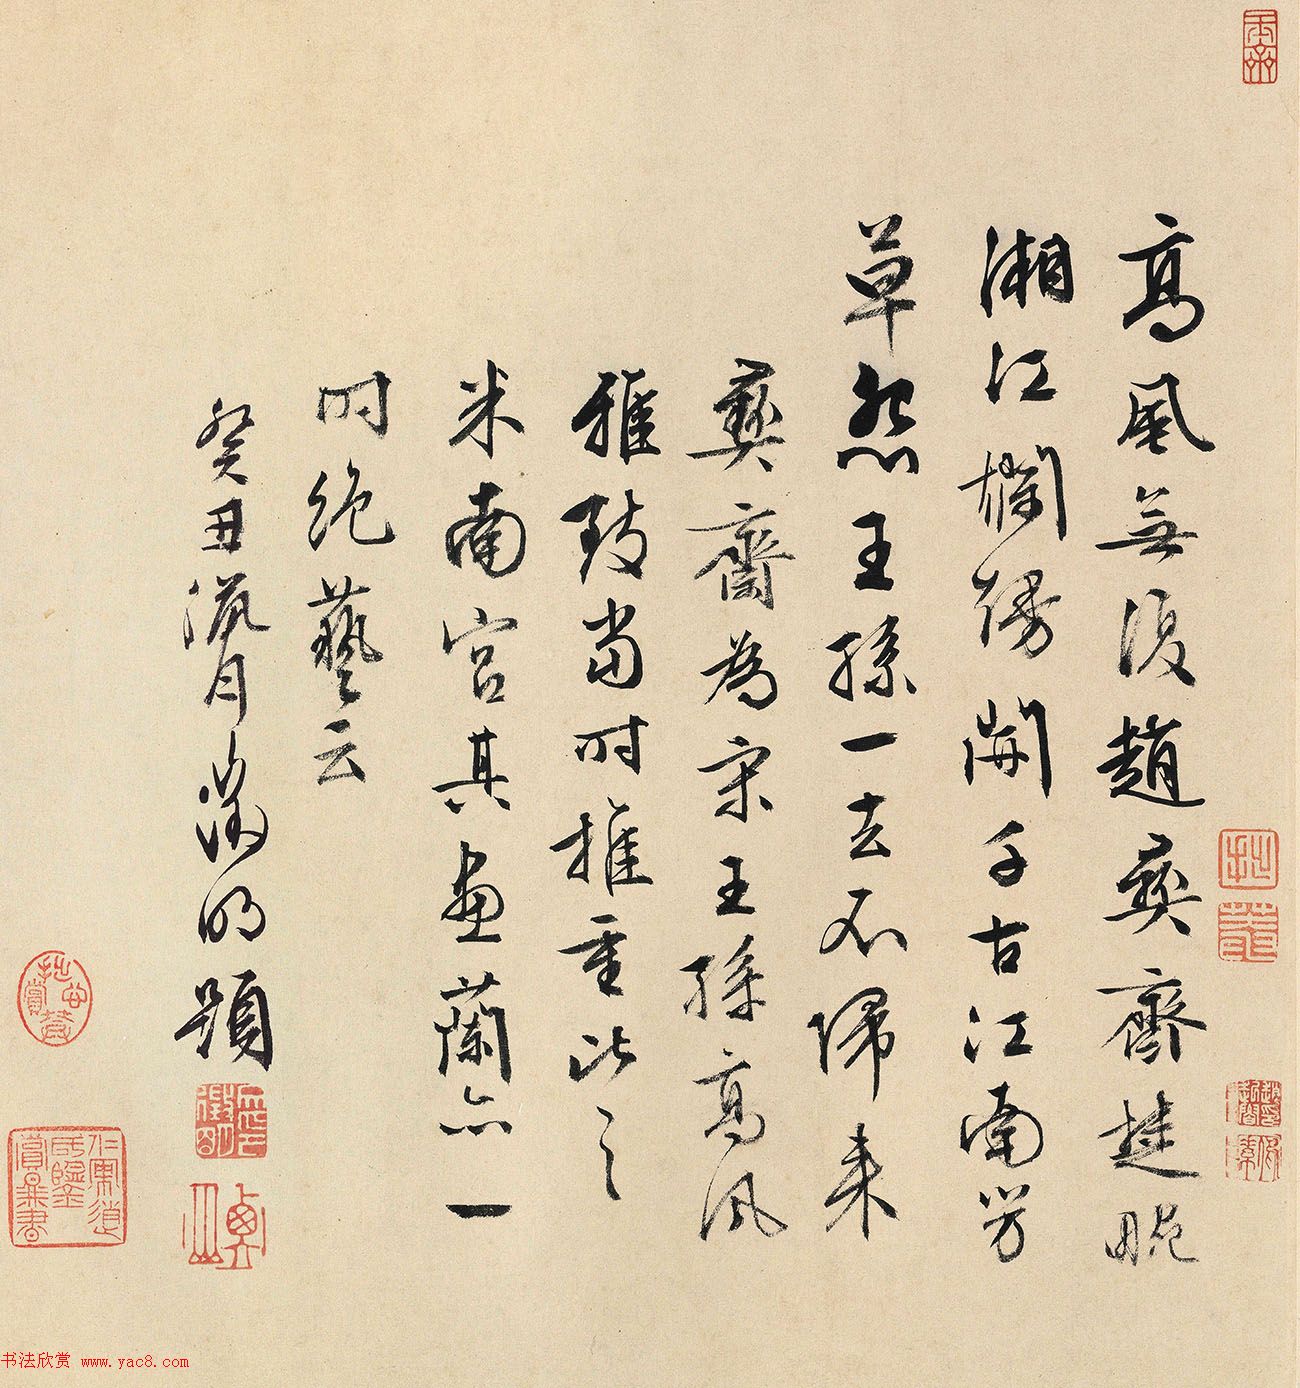 高風無復趙彝齋楚畹
湘江爛熳開千古江南芳
草怨王孫一去不歸来
彝齋為宋王孫高風
雅致當时推重比之
米南宫其畫蘭亦一
时絶藝云
癸丑臘月徵明題
衡山
书法欣赏 www.yac8.com